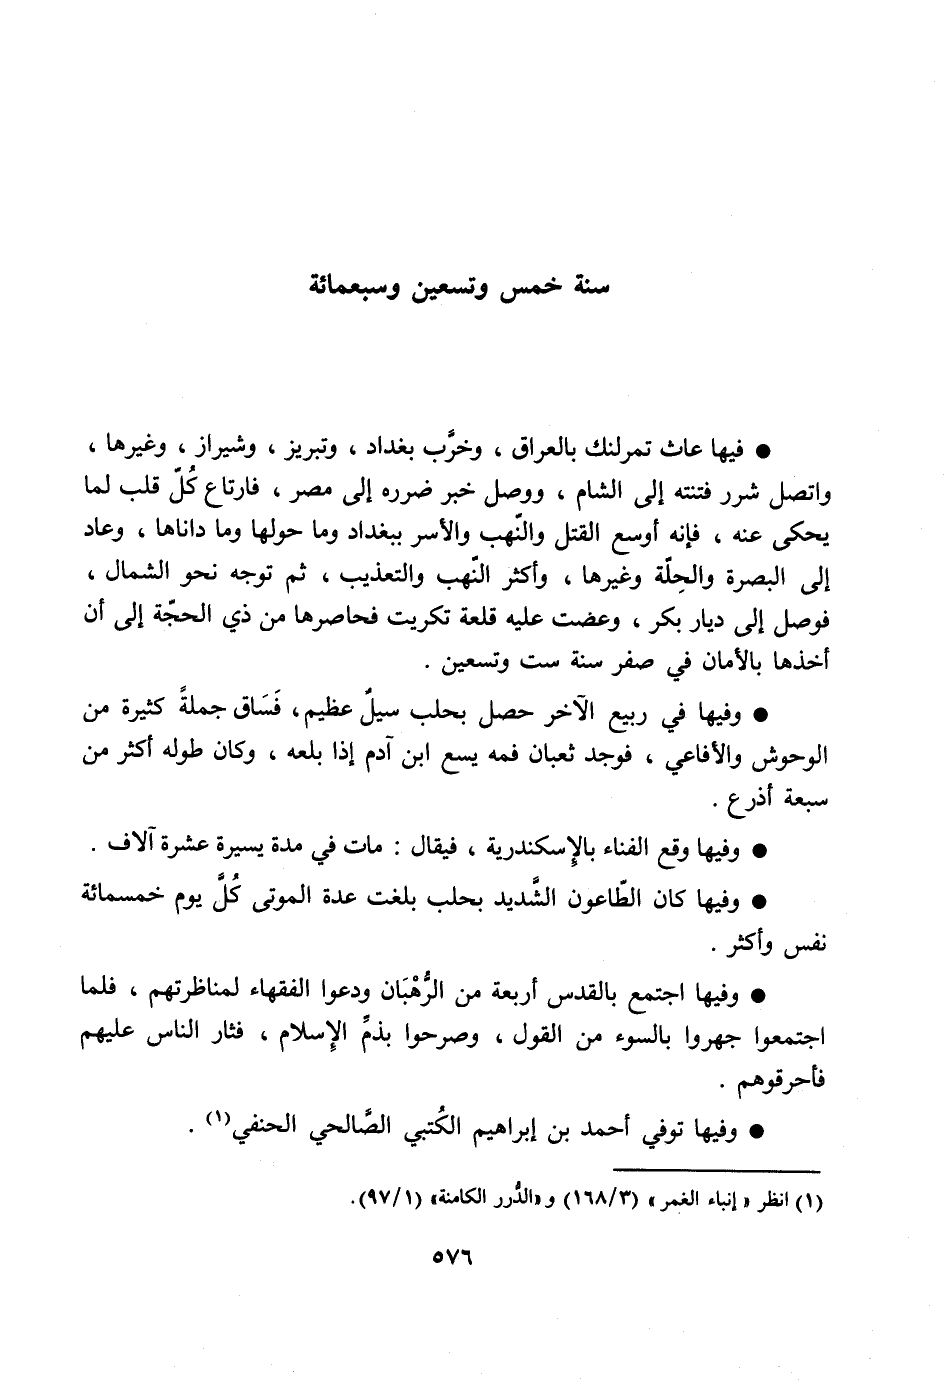 سنة خمس وتسعين وسبعمائة
● فيها عاث تمرلنك بالعراق ، وخرَّب بغداد ، وتبريز ، وشيراز ، وغيرها ،
واتصل شرر فتنته إلى الشام ، ووصل خبر ضرره إلى مصر ، فارتاع كُلّ قلب لما
يحكى عنه ، فإنه أوسع القتل والنّهب والأسر ببغداد وما حولها وما داناها ، وعاد
إلى البصرة والحِلّة وغيرها ، وأكثر النّهب والتعذيب ، ثم توجه نحو الشمال ،
فوصل إلى ديار بكر ، وعضت عليه قلعة تكريت فحاصرها من ذي الحجّة إلى أن
أخذها بالأمان في صفر سنة ست وتسعين .
● وفيها في ربيع الآخر حصل بحلب سيلٌ عظيم، فَسَاق جملةً كثيرة من
الوحوش والأفاعي ، فوجد ثعبان فمه يسع ابن آدم إذا بلعه ، وكان طوله أكثر من
سبعة أذرع .
● وفيها وقع الفناء بالإسكندرية ، فيقال : مات في مدة يسيرة عشرة آلاف .
● وفيها كان الطّاعون الشَّديد بحلب بلغت عدة الموتى كُلَّ يوم خمسمائة
نفس وأكثر .
● وفيها اجتمع بالقدس أربعة من الرُّهْبَان ودعوا الفقهاء لمناظرتهم ، فلما
اجتمعوا جهروا بالسوء من القول ، وصرحوا بذمِّ الإسلام ، فثار الناس عليهم
فأحرقوهم .
● وفيها توفي أحمد بن إبراهيم الكُتبي الصَّالحي الحنفي(١) .
(١) انظر «إنباء الغمر» (١٦٨/٣) و«الدُّرر الكامنة» (٩٧/١).
٥٧٦